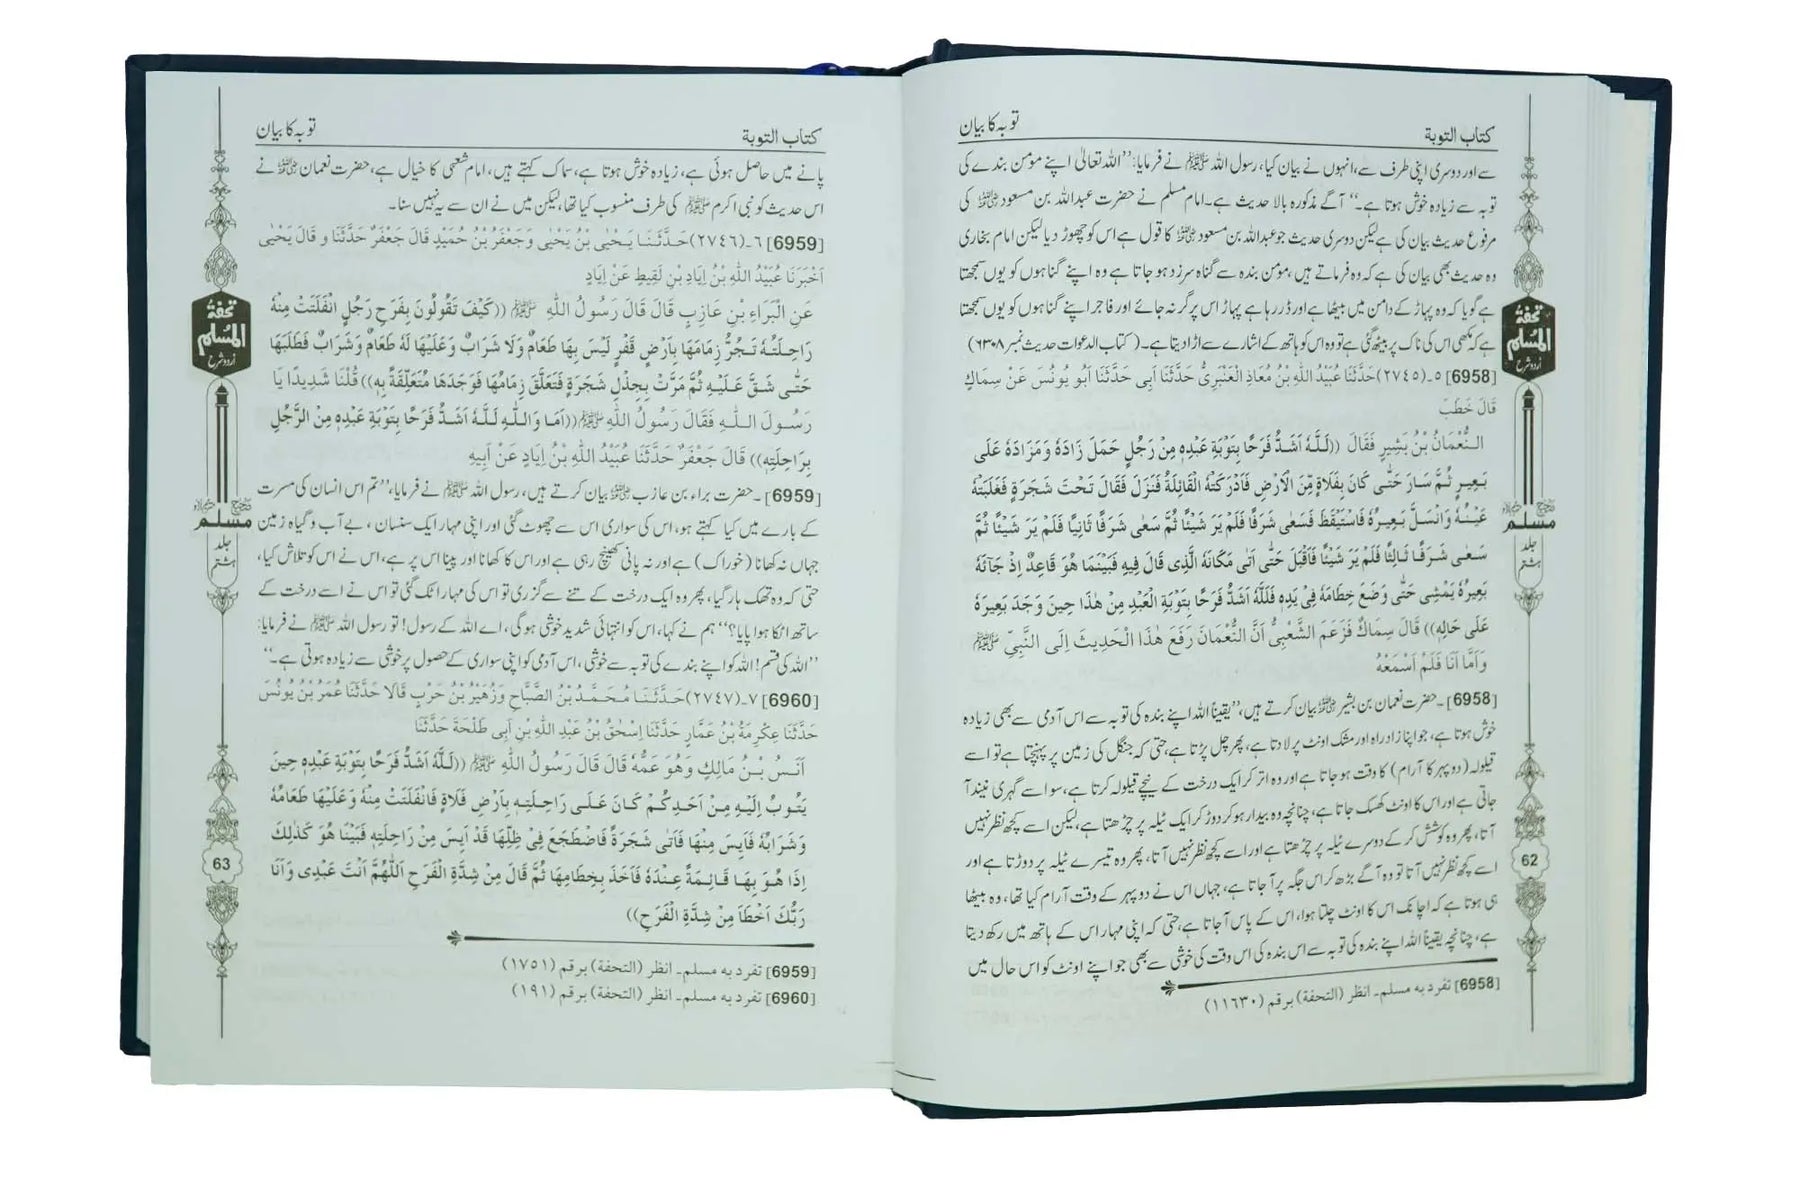 كتاب التوبة
توبہ کا بیان
سے اور دوسری اپنی طرف سے، انہوں نے بیان کیا، رسول اللہ ﷺ نے فرمایا: ’’اللہ تعالیٰ اپنے مومن بندے کی
توبہ سے زیادہ خوش ہوتا ہے۔‘‘ آگے مذکورہ بالا حدیث ہے۔ امام مسلم نے حضرت عبداللہ بن مسعود ؓ کی
مرفوع حدیث بیان کی ہے لیکن دوسری حدیث جو عبداللہ بن مسعود ؓ کا قول ہے اس کو چھوڑ دیا لیکن امام بخاری
وہ حدیث بھی بیان کی ہے کہ وہ فرماتے ہیں، مومن بندہ سے گناہ سرزد ہو جاتا ہے وہ اپنے گناہوں کو یوں سمجھتا
ہے گویا کہ وہ پہاڑ کے دامن میں بیٹھا ہے اور ڈر رہا ہے پہاڑ اس پر گر نہ جائے اور فاجر اپنے گناہوں کو یوں سمجھتا
ہے کہ مکھی اس کی ناک پر بیٹھ گئی ہے تو وہ اس کو ہاتھ کے اشارے سے اڑا دیتا ہے۔ (کتاب الدعوات حدیث نمبر ۶۳۰۸)
[6958] ٥۔(٢٧٤٥) حَدَّثَنَا عُبَيْدُ اللّٰهِ بْنُ مُعَاذٍ الْعَنْبَرِيُّ حَدَّثَنَا أَبِي حَدَّثَنَا أَبُو يُونُسَ عَنْ سِمَاكٍ
قَالَ خَطَبَ
النُّعْمَانُ بْنُ بَشِيرٍ فَقَالَ ((لَلّٰهُ اَشَدُّ فَرَحًا بِتَوْبَةِ عَبْدِهٖ مِنْ رَجُلٍ حَمَلَ زَادَهٗ وَمَزَادَهٗ عَلٰى
بَعِيرٍ ثُمَّ سَارَ حَتّٰى كَانَ بِفَلَاةٍ مِّنَ الْاَرْضِ فَاَدْرَكَتْهُ الْقَائِلَةُ فَنَزَلَ فَقَالَ تَحْتَ شَجَرَةٍ فَغَلَبَتْهُ
عَيْنُهٗ وَانْسَلَّ بَعِيرُهٗ فَاسْتَيْقَظَ فَسَعٰى شَرَفًا فَلَمْ يَرَ شَيْئًا ثُمَّ سَعٰى شَرَفًا ثَانِيًا فَلَمْ يَرَ شَيْئًا ثُمَّ
سَعٰى شَرَفًا ثَالِثًا فَلَمْ يَرَ شَيْئًا فَاَقْبَلَ حَتّٰى اَتٰى مَكَانَهُ الَّذِى قَالَ فِيهِ فَبَيْنَمَا هُوَ قَاعِدٌ اِذْ جَآئَهٗ
بَعِيرُهٗ يَمْشِى حَتّٰى وَضَعَ خِطَامَهٗ فِىْ يَدِهٖ فَلَلّٰهُ اَشَدُّ فَرَحًا بِتَوْبَةِ الْعَبْدِ مِنْ هٰذَا حِينَ وَجَدَ بَعِيرَهٗ
عَلٰى حَالِهٖ)) قَالَ سِمَاكٌ فَزَعَمَ الشَّعْبِىُّ اَنَّ النُّعْمَانَ رَفَعَ هٰذَا الْحَدِيثَ اِلَى النَّبِىِّ ﷺ
وَاَمَّا اَنَا فَلَمْ اَسْمَعْهُ
[6958]۔ حضرت نعمان بن بشیر ؓ بیان کرتے ہیں، ’’یقیناً اللہ اپنے بندہ کی توبہ سے اس آدمی سے بھی زیادہ
خوش ہوتا ہے، جو اپنا زاد راہ اور مشک اونٹ پر لادتا ہے، پھر چل پڑتا ہے، حتی کہ جنگل کی زمین پر پہنچتا ہے تو اسے
قیلولہ (دوپہر کا آرام) کا وقت ہو جاتا ہے اور وہ اتر کر ایک درخت کے نیچے قیلولہ کرتا ہے، سو اسے گہری نیند آ
جاتی ہے اور اس کا اونٹ کھسک جاتا ہے، چنانچہ وہ بیدار ہو کر دوڑ کر ایک ٹیلہ پر چڑھتا ہے، لیکن اسے کچھ نظر نہیں
آتا، پھر وہ کوشش کر کے دوسرے ٹیلہ پر چڑھتا ہے اور اسے کچھ نظر نہیں آتا، پھر وہ تیسرے ٹیلہ پر دوڑتا ہے اور
اسے کچھ نظر نہیں آتا تو وہ آگے بڑھ کر اس جگہ پر آ جاتا ہے، جہاں اس نے دوپہر کے وقت آرام کیا تھا، وہ بیٹھا
ہی ہوتا ہے کہ اچانک اس کا اونٹ چلتا ہوا، اس کے پاس آ جاتا ہے، حتی کہ اپنی مہار اس کے ہاتھ میں رکھ دیتا
ہے، چنانچہ یقیناً اللہ اپنے بندہ کی توبہ سے اس بندہ کی اس وقت کی خوشی سے بھی جو اپنے اونٹ کو اس حال میں
[6958] تفرد به مسلم۔ انظر (التحفة) برقم (١١٦٣٠)
تحفۃ
المسلم
اردو شرح
صحیح
مسلم
جلد
ہشتم
62
كتاب التوبة
توبہ کا بیان
پانے میں حاصل ہوئی ہے، زیادہ خوش ہوتا ہے، سماک کہتے ہیں، امام شعبی کا خیال ہے، حضرت نعمان ؓ نے
اس حدیث کو نبی اکرم ﷺ کی طرف منسوب کیا تھا، لیکن میں نے ان سے یہ نہیں سنا۔
[6959] ٦۔(٢٧٤٦) حَدَّثَنَا يَحْيٰى بْنُ يَحْيٰى وَجَعْفَرُ بْنُ حُمَيْدٍ قَالَ جَعْفَرٌ حَدَّثَنَا و قَالَ يَحْيٰى
اَخْبَرَنَا عُبَيْدُ اللّٰهِ بْنُ اِيَادِ بْنِ لَقِيطٍ عَنْ اِيَادٍ
عَنِ الْبَرَاءِ بْنِ عَازِبٍ قَالَ قَالَ رَسُولُ اللّٰهِ ﷺ ((كَيْفَ تَقُولُونَ بِفَرَحِ رَجُلٍ انْفَلَتَتْ مِنْهُ
رَاحِلَتُهٗ تَجُرُّ زِمَامَهَا بِاَرْضٍ قَفْرٍ لَيْسَ بِهَا طَعَامٌ وَلَا شَرَابٌ وَعَلَيْهَا لَهٗ طَعَامٌ وَشَرَابٌ فَطَلَبَهَا
حَتّٰى شَقَّ عَلَيْهِ ثُمَّ مَرَّتْ بِجِذْلِ شَجَرَةٍ فَتَعَلَّقَ زِمَامُهَا فَوَجَدَهَا مُتَعَلِّقَةً بِهٖ)) قُلْنَا شَدِيدًا يَا
رَسُولَ اللّٰهِ فَقَالَ رَسُولُ اللّٰهِ ﷺ ((اَمَا وَاللّٰهِ لَلّٰهُ اَشَدُّ فَرَحًا بِتَوْبَةِ عَبْدِهٖ مِنْ الرَّجُلِ
بِرَاحِلَتِهٖ)) قَالَ جَعْفَرٌ حَدَّثَنَا عُبَيْدُ اللّٰهِ بْنُ اِيَادٍ عَنْ اَبِيهِ
[6959]۔ حضرت براء بن عازب ؓ بیان کرتے ہیں، رسول اللہ ﷺ نے فرمایا، ’’تم اس انسان کی مسرت
کے بارے میں کیا کہتے ہو، اس کی سواری اس سے چھوٹ گئی اور اپنی مہار ایک سنسان، بے آب و گیاہ زمین
جہاں نہ کھانا (خوراک) ہے اور نہ پانی کھینچ رہی ہے اور اس کا کھانا اور پینا اس پر ہے، اس نے اس کو تلاش کیا،
حتی کہ وہ تھک ہار گیا، پھر وہ ایک درخت کے تنے سے گزری تو اس کی مہار اٹک گئی تو اس نے اسے درخت کے
ساتھ اٹکا ہوا پایا؟‘‘ ہم نے کہا، اس کو انتہائی شدید خوشی ہوگی، اے اللہ کے رسول! تو رسول اللہ ﷺ نے فرمایا:
’’اللہ کی قسم! اللہ کو اپنے بندے کی توبہ سے خوشی، اس آدمی کو اپنی سواری کے حصول پر خوشی سے زیادہ ہوتی ہے۔‘‘
[6960] ٧۔(٢٧٤٧) حَدَّثَنَا مُحَمَّدُ بْنُ الصَّبَّاحِ وَزُهَيْرُ بْنُ حَرْبٍ قَالَا حَدَّثَنَا عُمَرُ بْنُ يُونُسَ
حَدَّثَنَا عِكْرِمَةُ بْنُ عَمَّارٍ حَدَّثَنَا اِسْحٰقُ بْنُ عَبْدِ اللّٰهِ بْنِ اَبِى طَلْحَةَ حَدَّثَنَا
اَنَسُ بْنُ مَالِكٍ وَهُوَ عَمُّهٗ قَالَ قَالَ رَسُولُ اللّٰهِ ﷺ ((لَلّٰهُ اَشَدُّ فَرَحًا بِتَوْبَةِ عَبْدِهٖ حِينَ
يَتُوبُ اِلَيْهِ مِنْ اَحَدِكُمْ كَانَ عَلٰى رَاحِلَتِهٖ بِاَرْضِ فَلَاةٍ فَانْفَلَتَتْ مِنْهُ وَعَلَيْهَا طَعَامُهٗ
وَشَرَابُهٗ فَاَيِسَ مِنْهَا فَاَتٰى شَجَرَةً فَاضْطَجَعَ فِىْ ظِلِّهَا قَدْ اَيِسَ مِنْ رَاحِلَتِهٖ فَبَيْنَا هُوَ كَذٰلِكَ
اِذَا هُوَ بِهَا قَائِمَةً عِنْدَهٗ فَاَخَذَ بِخِطَامِهَا ثُمَّ قَالَ مِنْ شِدَّةِ الْفَرَحِ اَللّٰهُمَّ اَنْتَ عَبْدِى وَاَنَا
رَبُّكَ اَخْطَاَ مِنْ شِدَّةِ الْفَرَحِ))
[6959] تفرد به مسلم۔ انظر (التحفة) برقم (١٧٥١)
[6960] تفرد به مسلم۔ انظر (التحفة) برقم (١٩١)
تحفۃ
المسلم
اردو شرح
صحیح
مسلم
جلد
ہشتم
63